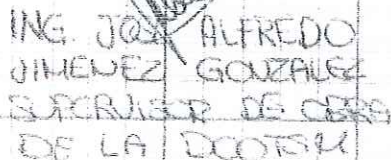 ING. JOSE ALFREDO
JIMENEZ GONZALEZ
SUPERVISOR DE OBRA
DE LA